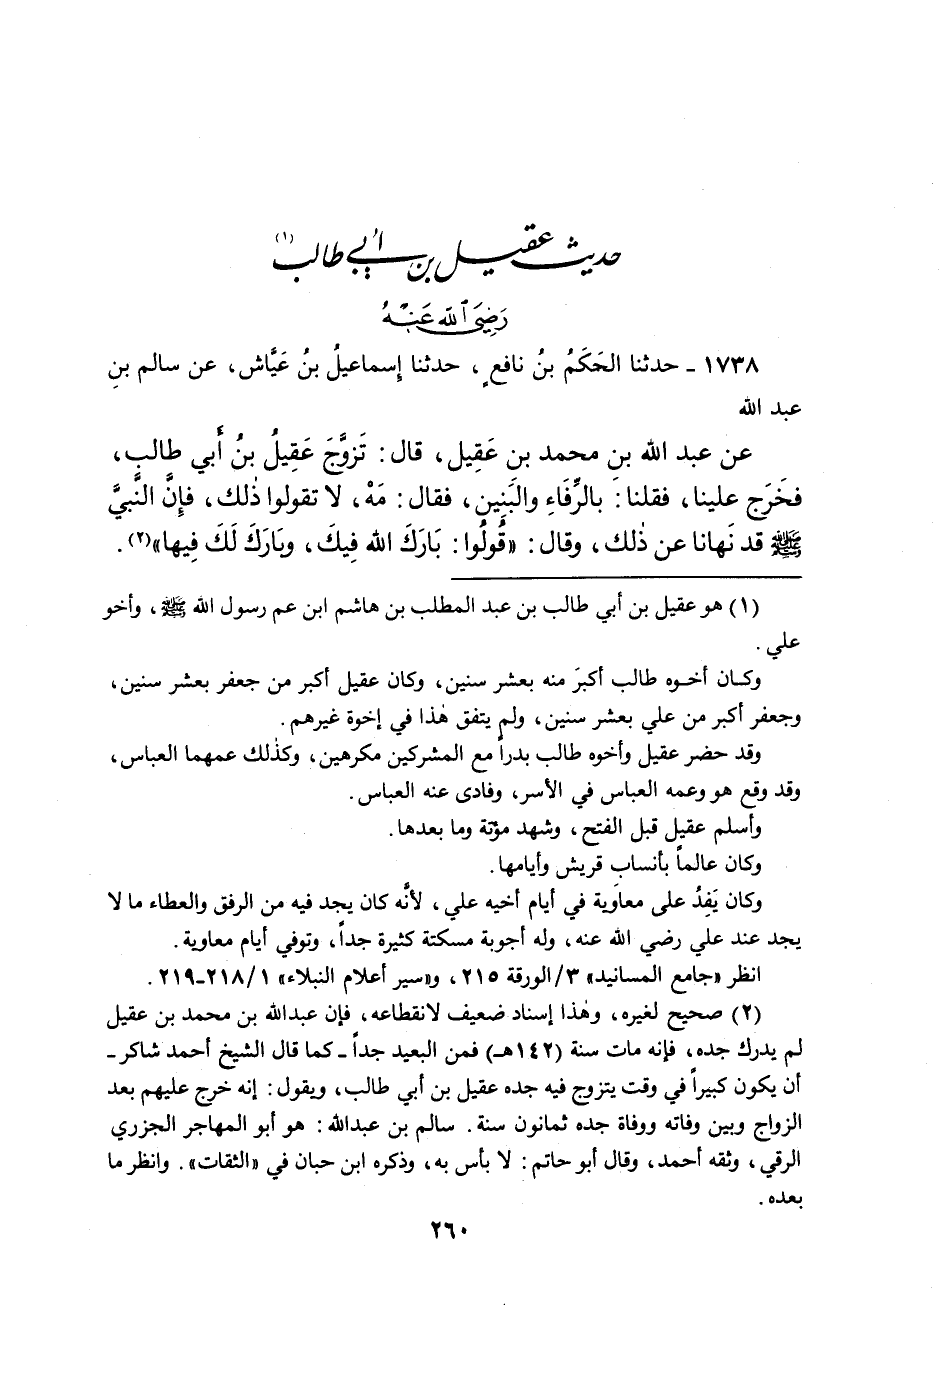 حديث عقيل بن أبي طالب (١)
رَضِيَ اللهُ عَنْهُ
١٧٣٨ ـ حدثنا الحَكَمُ بنُ نافعٍ، حدثنا إسماعيلُ بنُ عَيَّاش، عن سالم بنِ
عبد الله
عن عبد الله بن محمد بن عَقِيل، قال: تَزوَّجَ عَقِيلُ بنُ أَبي طالب،
فخَرَج علينا، فقلنا: بالرِّفَاءِ والبَنِين، فقال: مَهْ، لا تقولوا ذٰلك، فإنَّ النَّبيَّ
ﷺ قد نَهانا عن ذٰلك، وقال: «قُولُوا: بَارَكَ الله فِيكَ، وبَارَكَ لَكَ فِيها»(٢).
(١) هو عقيل بن أبي طالب بن عبد المطلب بن هاشم ابن عم رسول الله ﷺ، وأخو
علي.
وكان أخوه طالب أكبرَ منه بعشر سنين، وكان عقيل أكبر من جعفر بعشر سنين،
وجعفر أكبر من علي بعشر سنين، ولم يتفق هٰذا في إخوة غيرهم.
وقد حضر عقيل وأخوه طالب بدراً مع المشركين مكرهين، وكذٰلك عمهما العباس،
وقد وقع هو وعمه العباس في الأسر، وفادى عنه العباس.
وأسلم عقيل قبل الفتح، وشهد مؤتة وما بعدها.
وكان عالماً بأنساب قريش وأيامها.
وكان يَفِدُ على معاوية في أيام أخيه علي، لأنَّه كان يجد فيه من الرفق والعطاء ما لا
يجد عند علي رضي الله عنه، وله أجوبة مسكتة كثيرة جداً، وتوفي أيام معاوية.
انظر «جامع المسانيد» ٣/الورقة ٢١٥، و«سير أعلام النبلاء» ١/٢١٨ـ٢١٩.
(٢) صحيح لغيره، وهٰذا إسناد ضعيف لانقطاعه، فإن عبدالله بن محمد بن عقيل
لم يدرك جده، فإنه مات سنة (١٤٢هـ) فمن البعيد جداً ـ كما قال الشيخ أحمد شاكر ـ
أن يكون كبيراً في وقت يتزوج فيه جده عقيل بن أبي طالب، ويقول: إنه خرج عليهم بعد
الزواج وبين وفاته ووفاة جده ثمانون سنة. سالم بن عبدالله: هو أبو المهاجر الجزري
الرقي، وثقه أحمد، وقال أبو حاتم: لا بأس به، وذكره ابن حبان في «الثقات». وانظر ما
بعده.
٢٦٠